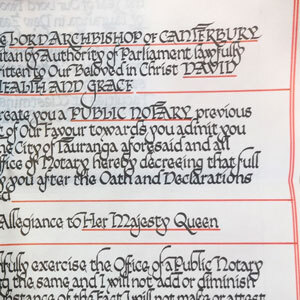 LORD ARCHBISHOP of CANTERBURY
by Authority of Parliament lawfully
to Our Beloved in Christ DAVID
HEALTH AND GRACE
create you a PUBLIC NOTARY previous
of Our Favour towards you admit you
the City of Tauranga aforesaid and all
Office of Notary hereby decreeing that full
by you after the Oath and Declarations
Allegiance to Her Majesty Queen
exercise the Office of a Public Notary
the same and I will not add or diminish
of the Fact I will not make or attest